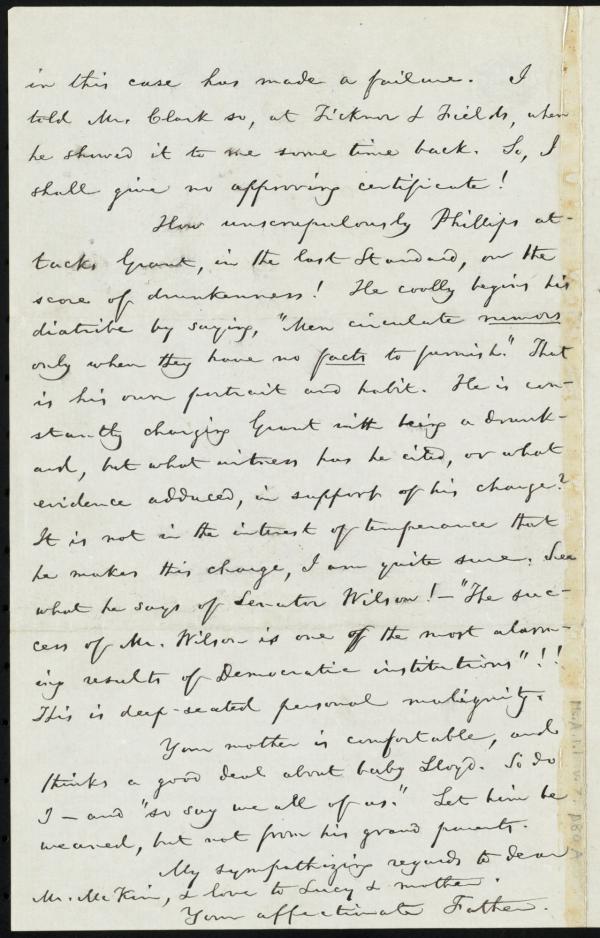 in this case has made a failure. I
told Mr. Clark so, at Ticknor & Fields, when
he showed it to me some time back. So, I
shall give no approving certificate!
How unscrupulously Phillips at-
tacks Grant, in the last Standard, on the
score of drunkenness! He coolly begins his
diatribe by saying, "Men circulate rumors
only when they have no facts to furnish." That
is his own portrait and habit. He is con-
stantly charging Grant with being a drunk-
ard, but what witness has he cited, or what
evidence adduced, in support of his charge?
It is not in the interest of temperance that
he makes this charge, I am quite sure. See
what he says of Senator Wilson! – "The suc-
cess of Mr. Wilson is one of the most alarm-
ing results of Democratic institutions"!!
This is deep-seated personal malignity.
Your mother is comfortable, and
thinks a good deal about baby Lloyd. So do
I – and "so say we all of us." Let him be
weaned, but not from his grand parents.
My sympathizing regards to dear
Mr. McKim, & love to Lucy & mother.
Your affectionate Father.
Ms.A.1.1 v.7, p80A